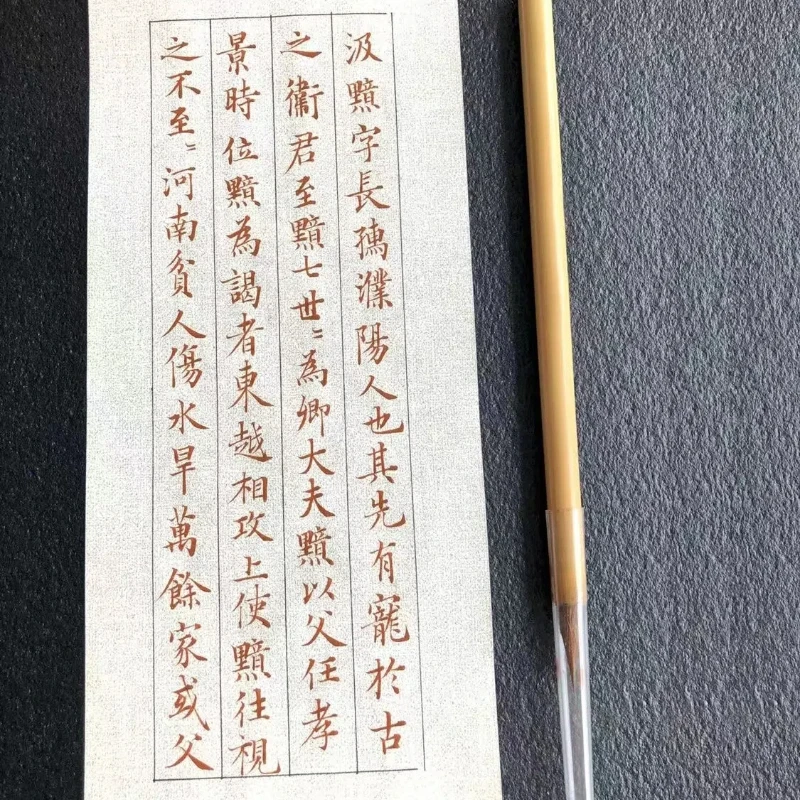 汲黯字長孺濮陽人也其先有寵於古
之衞君至黯七世〻為卿大夫黯以父任孝
景時位黯為謁者東越相攻上使黯往視
之不至〻河南貧人傷水旱萬餘家或父